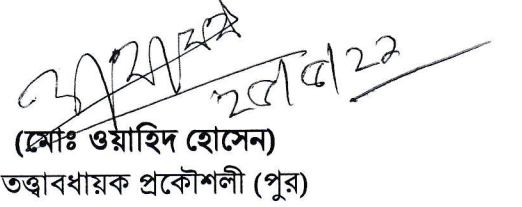 (মোঃ ওয়াহিদ হোসেন)
তত্ত্বাবধায়ক প্রকৌশলী (পুর)